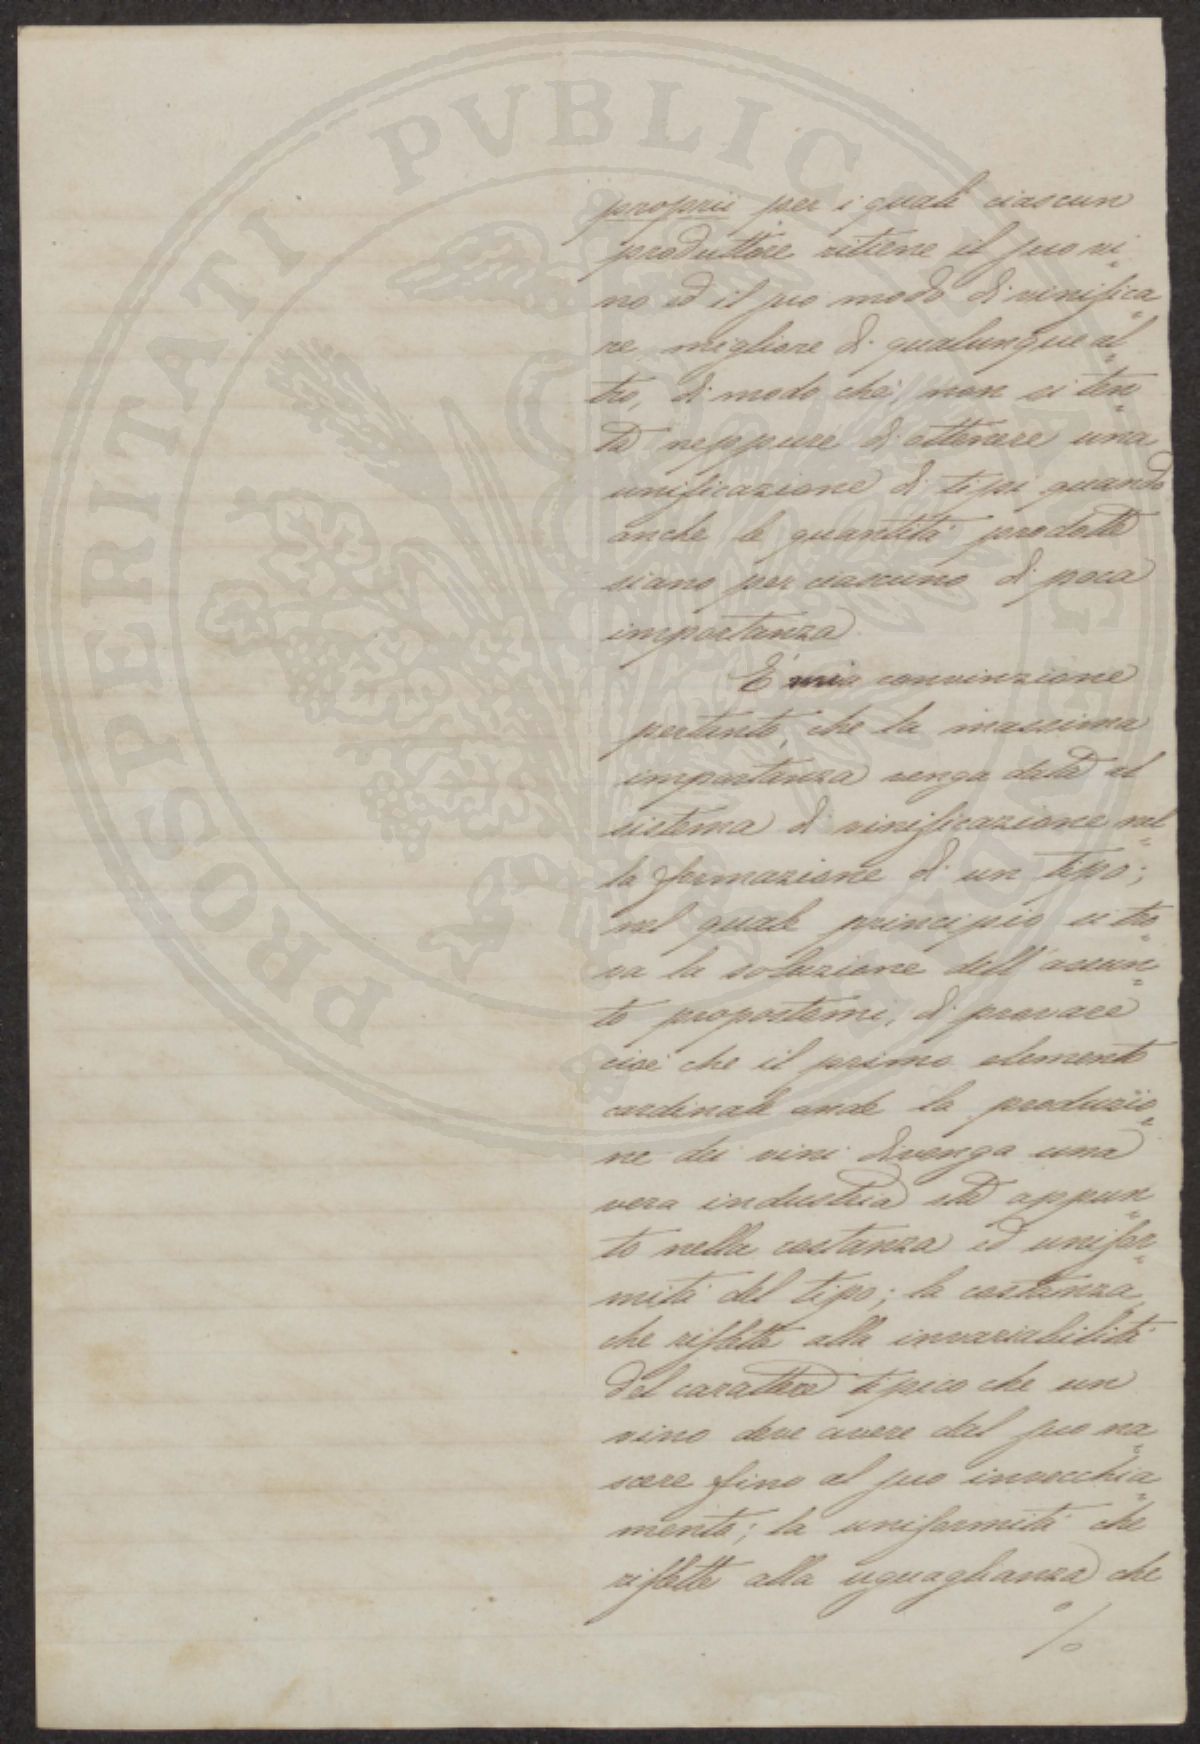 PROSPERITATI PUBLICAE AUGENDAE
proprii per i quali ciascun
produttore ritiene il suo vi=
no ed il suo modo di vinifica=
re, migliore di qualunque al=
tro, di modo che, non si ten=
ta neppure di ottenere una
unificazione di tipi quando
anche le quantità prodotte
siano per ciascuno di poca
importanza.
E' mia convinzione
pertanto, che la massima
importanza venga data al
sistema di vinificazione nel=
la formazione di un tipo;
nel quale principio si tro=
va la soluzione dell'assun=
to propostemi, di provare
cioè che il primo elemento
cardinale onde la produzio=
ne dei vini divenga una
vera industria sta appun=
to nella costanza ed unifor=
mità del tipo; la costanza
che riflette alla invariabilità
del carattere tipico che un
vino deve avere dal suo na=
scere fino al suo invecchia=
mento; la uniformità che
riflette alla uguaglianza che
%